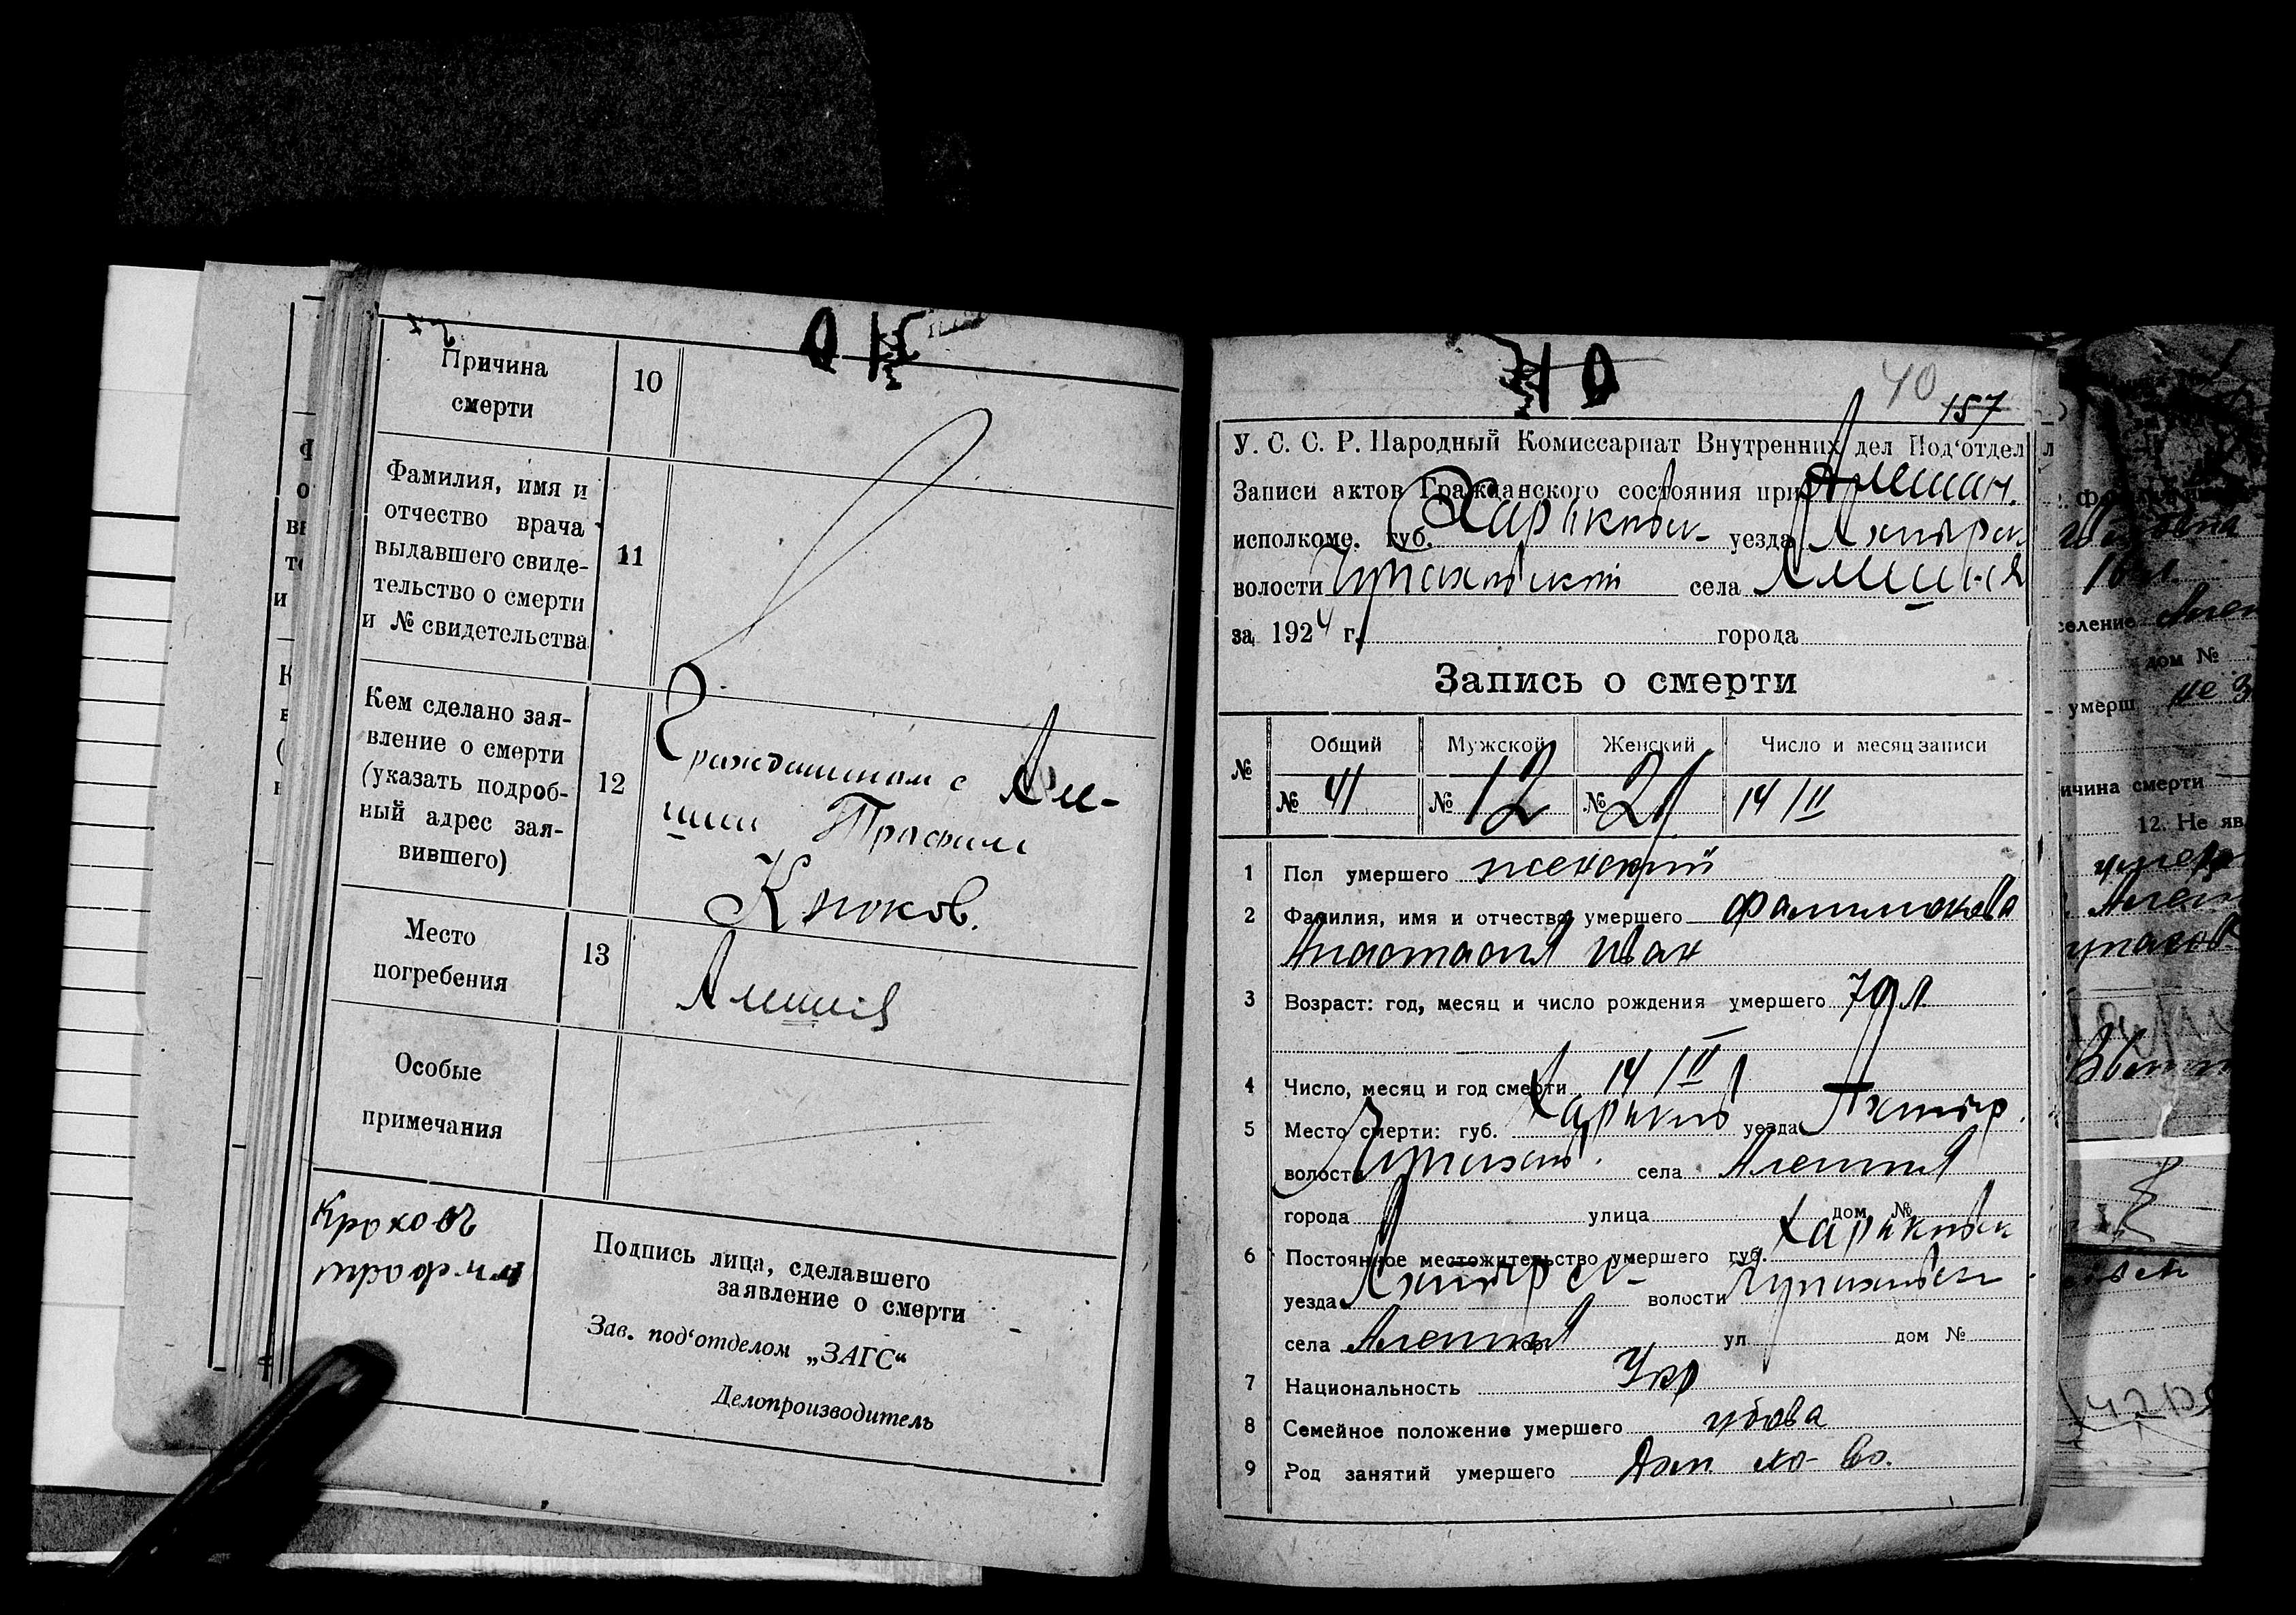 Причина
смерти
10
Фамилия, имя и
отчество врача
выдавшего свиде-
тельство о смерти
и № свидетельства
11
Кем сделано зая-
вление о смерти
(указать подроб-
ный адрес зая-
вившего)
12
Гражданином с Але-
шни Трофим
Клюков.
Место
погребения
13
Алешня
Особые
примечания
Подпись лица, сделавшего
заявление о смерти
Зав. под'отделом „ЗАГС“
Делопроизводитель
40
157
У. С. С. Р. Народный Комиссариат Внутренних дел Под'отдел
Записи актов Гражданского состояния при Алешан.
исполкоме. губ. Харьковск уезда Ахтырск
волости села Алешня
за 1924 г. города
Запись о смерти
№ Общий Мужской Женский Число и месяц записи
№ 41 № 12 № 21 14/II
1 Пол умершего женский
2 Фамилия, имя и отчество умершего
Анастасия Иван
3 Возраст: год, месяц и число рождения умершего 70 л
4 Число, месяц и год смерти 14/II
5 Место смерти: губ. Харьков уезда Ахтыр.
волости села Алешня
города улица дом №
6 Постоянное местожительство умершего губ. Харьковск
уезда Ахтырск волости
села Алешня ул дом №
7 Национальность Укр
8 Семейное положение умершего вдова
9 Род занятий умершего Дом. хо-во.